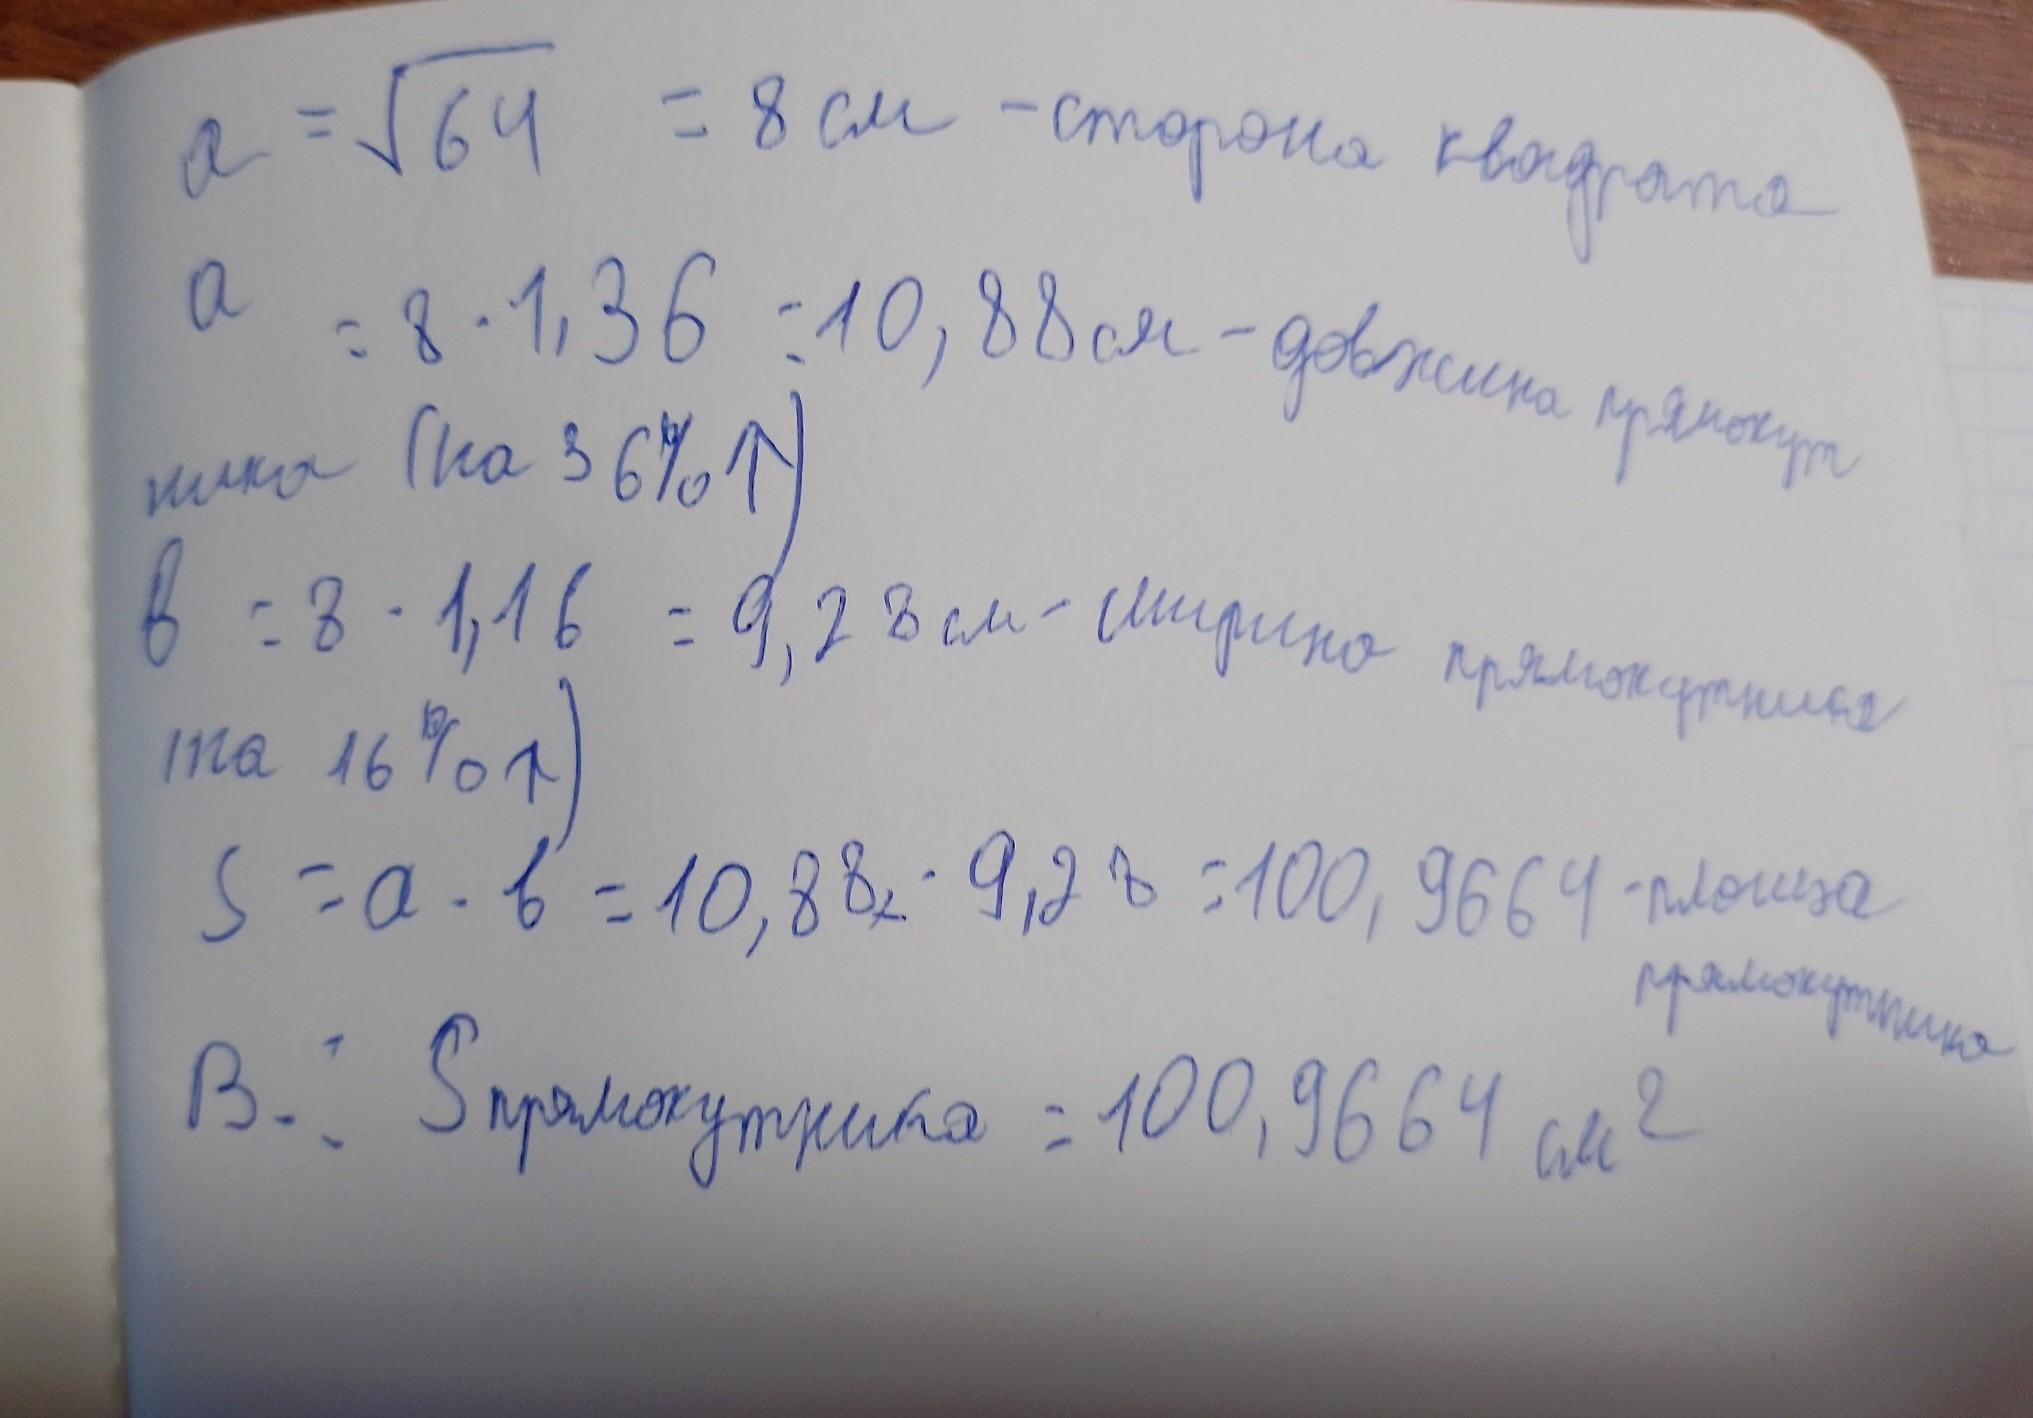 a = √64 = 8 см - сторона квадрата
a = 8 · 1,36 = 10,88 см - довжина прямокут
ника (на 36% ↑)
в = 8 · 1,16 = 9,28 см - ширина прямокутника
(на 16% ↑)
S = a · b = 10,88 · 9,28 = 100,9664 - площа
прямокутника
В.: Sпрямокутника = 100,9664 см²